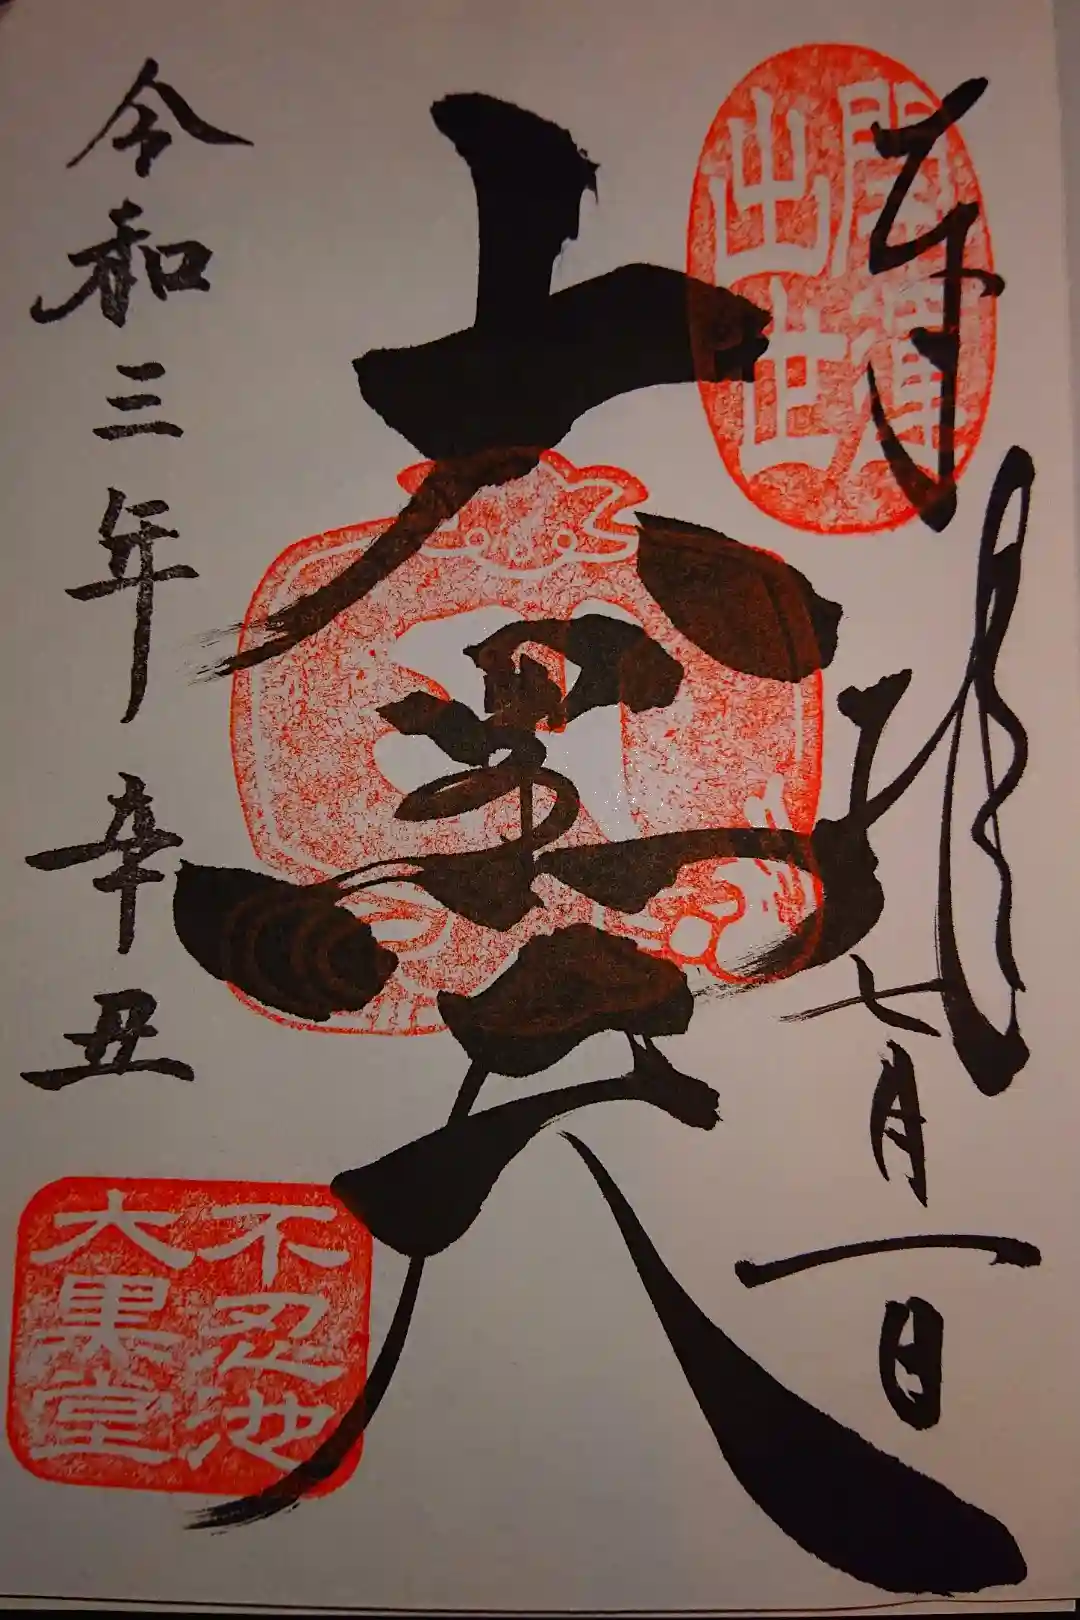 開運
出世
奉拝
七月一日
大黒天
令和三年辛丑
不忍池
大黒堂